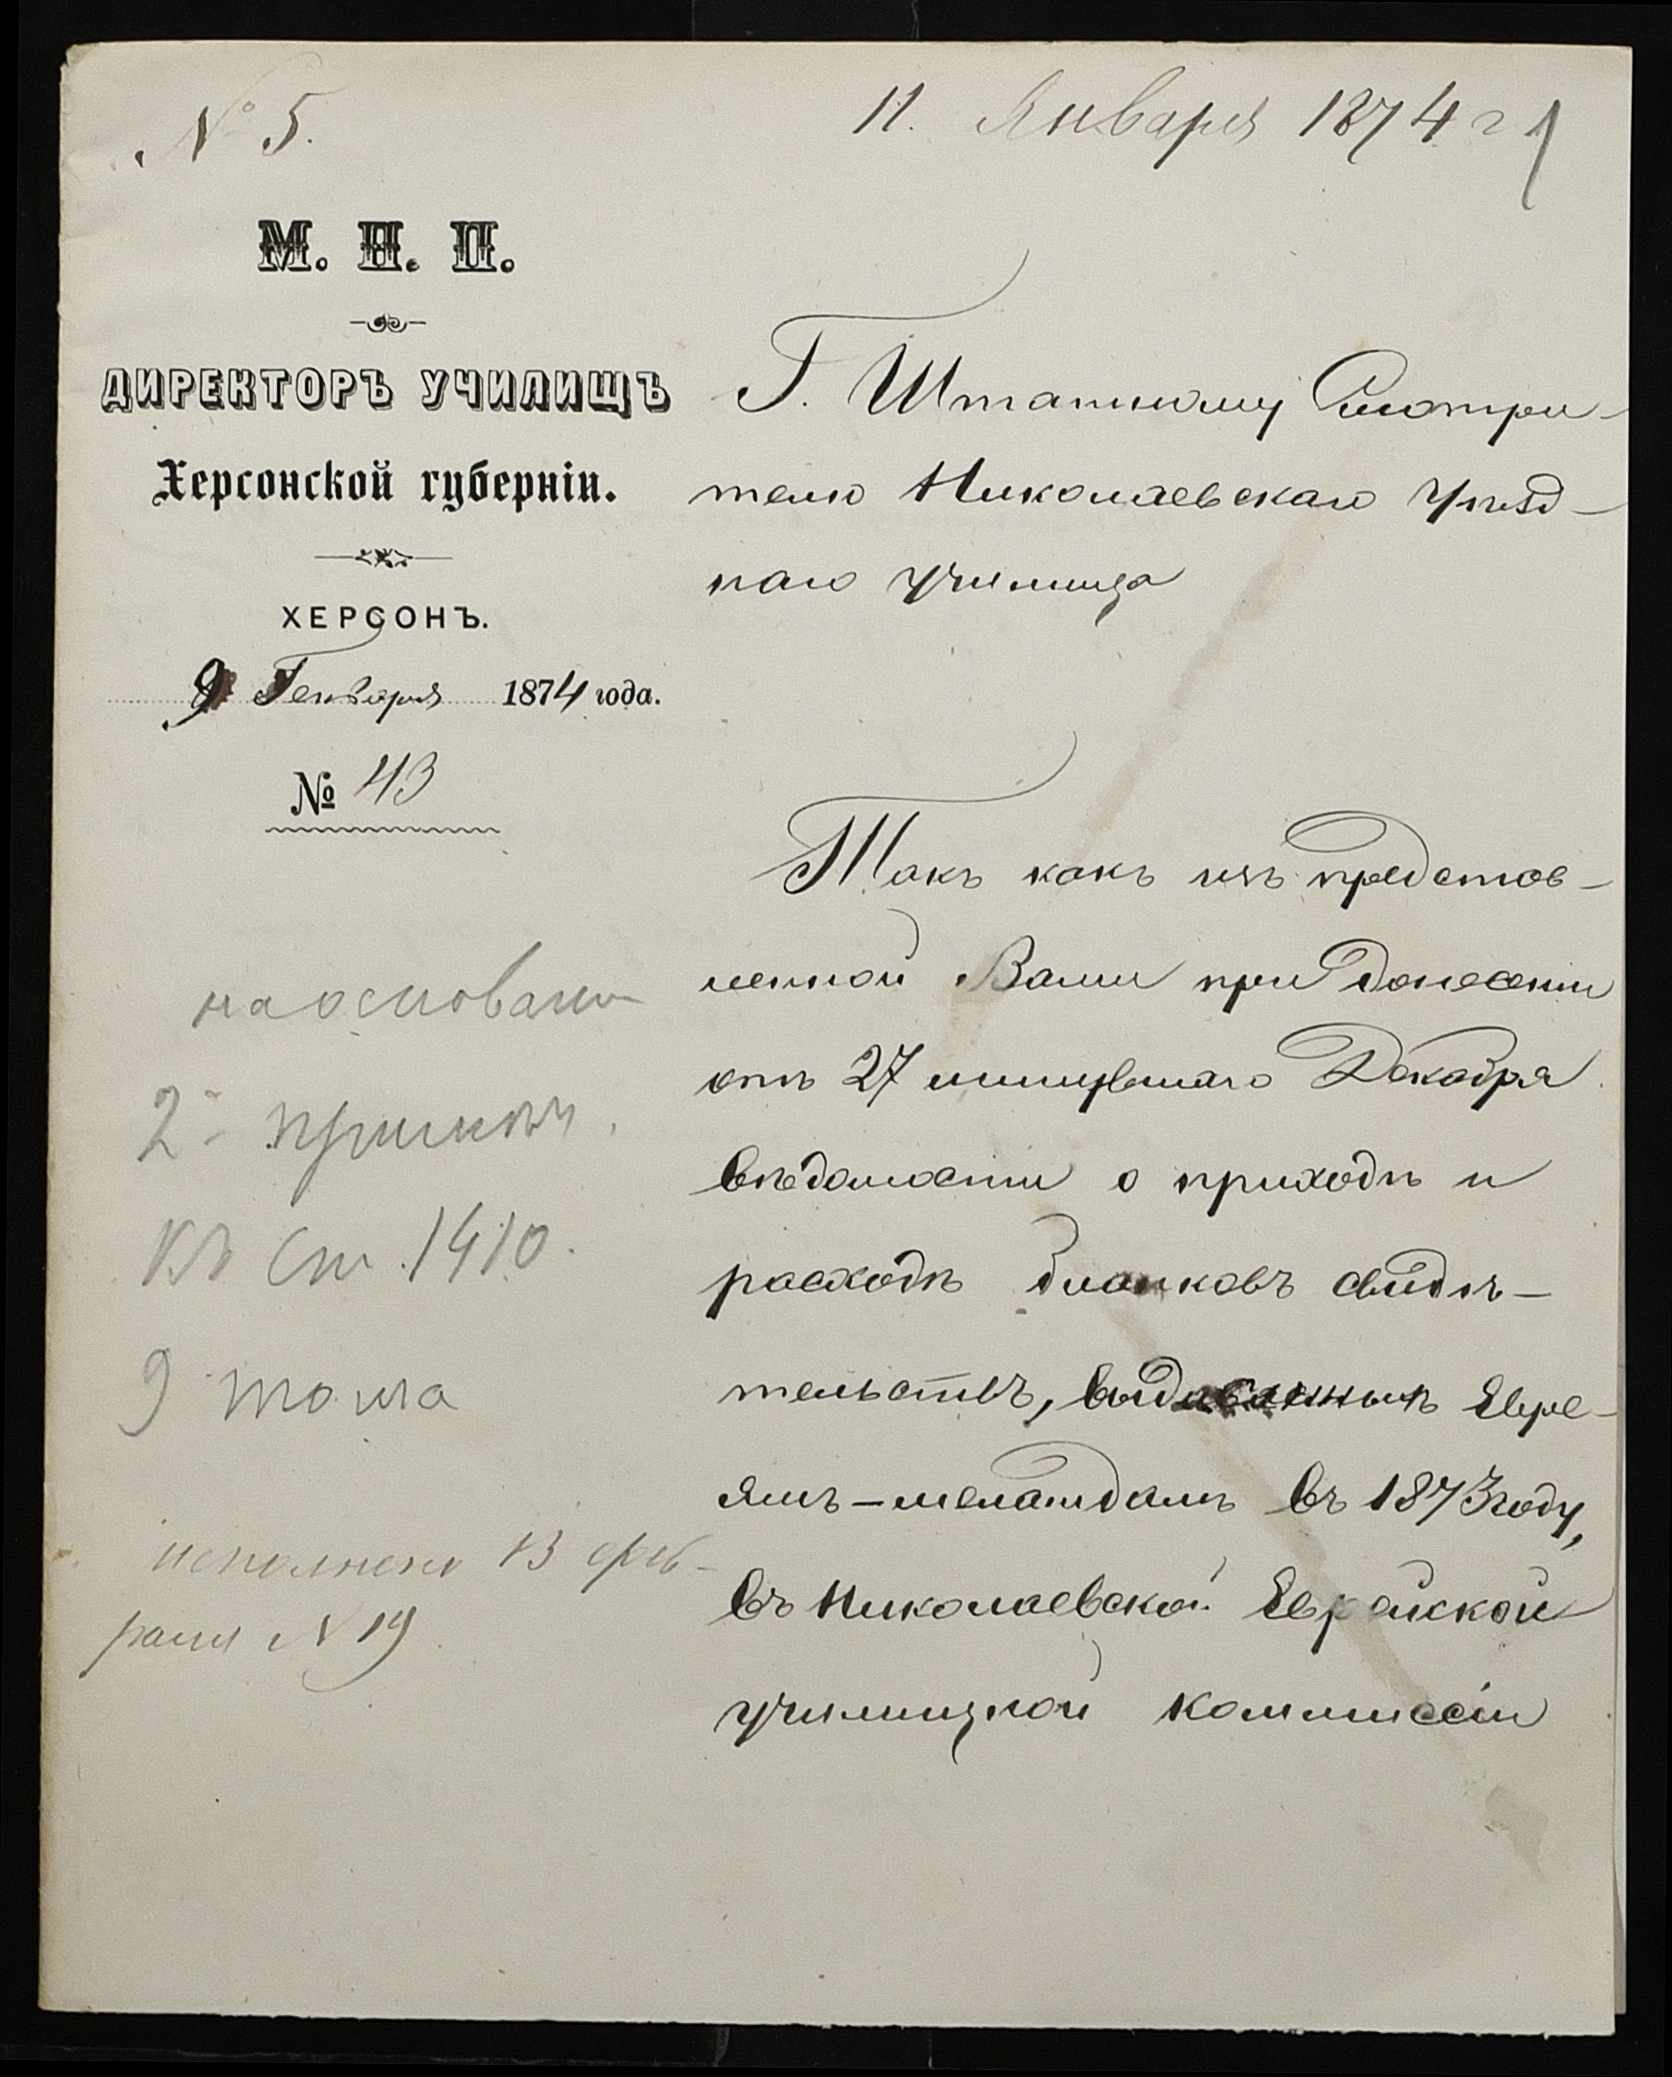 № 5.
11. Января 1874 г
1
М. Н. П.
ДИРЕКТОРЪ УЧИЛИЩЪ
Херсонской губерніи.
ХЕРСОНЪ.
9 Генваря 1874 года.
№ 43
Г. Штатному Смотри-
телю Николаевскаго Уѣзд-
наго училища
Такъ какъ изъ представ-
ленной Вами при донесеніи
отъ 27 минувшаго Декабря
вѣдомости о приходѣ и
расходѣ бланковъ свидѣ-
тельствъ, выдаванныхъ Евре-
ямъ-меламдамъ въ 1873 году,
въ Николаевской Еврейской
училищной коммиссіи
на основании
2 примѣч.
къ Ст. 1410.
9 тома
исполнено 13 фев-
раля № 19